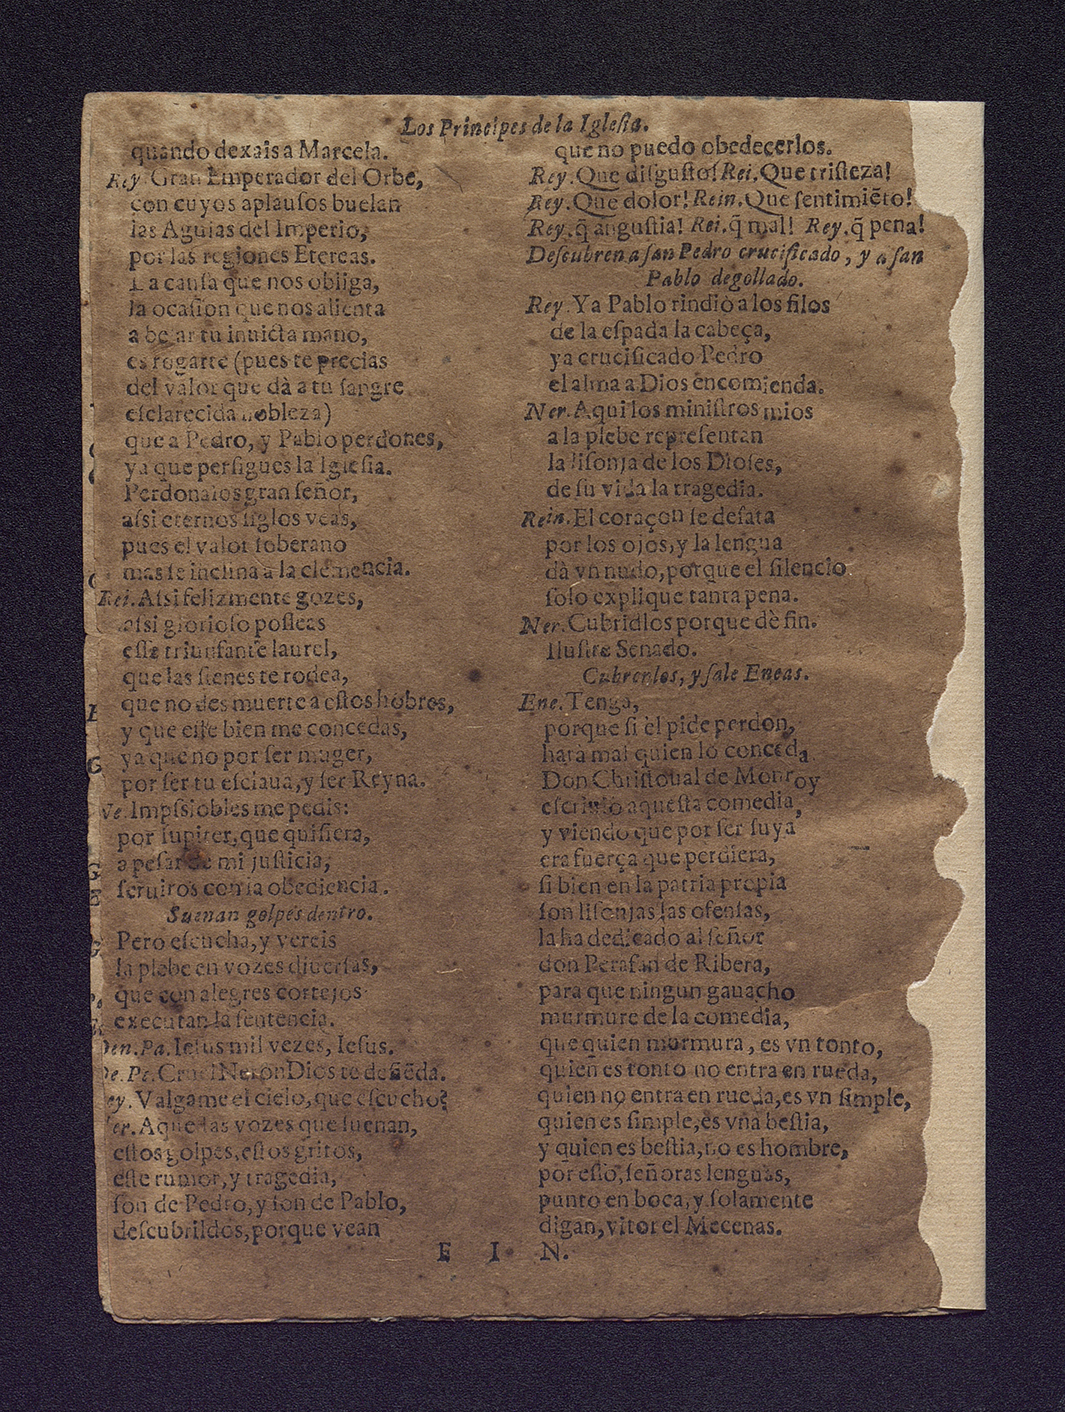 Los Principes de la Iglesia.
quando dexais a Marcela.
Rey. Gran Emperador del Orbe,
con cuyos aplausos buelan
las Aguias del Imperio,
por las regiones Etereas.
La causa que nos obliga,
la ocasion que nos alienta
a besar tu inuicta mano,
es rogarte (pues te precias
del valor que dà a tu sangre
esclarecida nobleza)
que a Pedro, y Pablo perdones,
ya que persigues la Iglesia.
Perdonalos gran señor,
assi eternos siglos veas,
pues el valor soberano
mas se inclina a la clemencia.
Rei. Assi felizmente gozes,
assi glorioso posseas
este triunfante laurel,
que las sienes te rodea,
que no des muerte a estos hõbres,
y que este bien me concedas,
ya que no por ser muger,
por ser tu esclaua, y ser Reyna.
Ne. Impssiobles me pedis:
por Iupiter, que quisiera,
a pesar de mi justicia,
seruiros con la obediencia.
Suenan golpes dentro.
Pero escucha, y vereis
la plebe en vozes diuersas,
que con alegres cortejos
executan la sentencia.
Den. Pa. Iesus mil vezes, Iesus.
De. Pe. Cruel Neron Dios te defiẽda.
ey. Valgame el cielo, que escucho?
er. Aquestas vozes que suenan,
estos golpes, estos gritos,
este rumor, y tragedia,
son de Pedro, y son de Pablo,
descubrildos, porque vean
que no puedo obedecerlos.
Rey. Que disgusto! Rei. Que tristeza!
Rey. Que dolor! Rein. Que sentimiẽto!
Rey. q̃ angustia! Rei. q̃ mal! Rey. q̃ pena!
Descubren a san Pedro crucificado, y a san
Pablo degollado.
Rey. Ya Pablo rindiò a los filos
de la espada la cabeça,
ya crucificado Pedro
el alma a Dios encomienda.
Ner. Aqui los ministros mios
a la plebe representan
la lisonja de los Dioses,
de su vida la tragedia.
Rein. El coraçon se desata
por los ojos, y la lengua
dà vn nudo, porque el silencio
solo explique tanta pena.
Ner. Cubridlos porque dè fin.
Ilustre Senado.
Cubrenlos, y sale Eneas.
Ene. Tenga,
porque si el pide perdon,
harà mal quien lo conceda
Don Christoual de Monroy
escriuiò aquesta comedia,
y viendo que por ser suya
era fuerça que perdiera,
si bien en la patria propia
son lisonjas las ofensas,
la ha dedicado al señor
don Perafan de Ribera,
para que ningun gauacho
murmure de la comedia,
que quien murmura, es vn tonto,
quien es tonto no entra en rueda,
quien no entra en rueda, es vn simple,
quien es simple, es vna bestia,
y quien es bestia, no es hombre,
por esto, señoras lenguas,
punto en boca, y solamente
digan, vitor el Mecenas.
F I N.